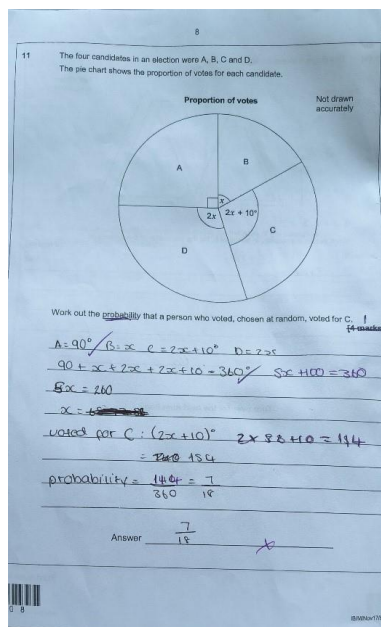 8
11 The four candidates in an election were A, B, C and D.
The pie chart shows the proportion of votes for each candidate.
Proportion of votes
Not drawn
accurately
A
B
x
2x
2x + 10°
C
D
Work out the probability that a person who voted, chosen at random, voted for C.
[4 marks
A=90° B=x C=2x+10° D=2x
90 + x + 2x + 2x + 10 = 360° 5x + 100 = 360
5x = 260
x =
voted for C : (2x+10)° 2 x 52 + 10 = 114
= 154
probability = 140 = 7
360 18
Answer 7
18
0 8
IB/M/Nov17/